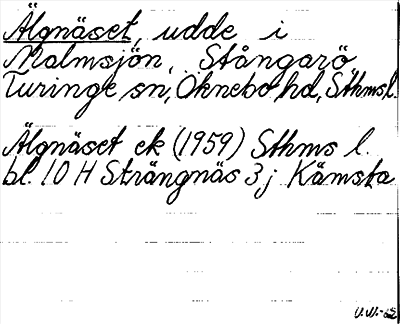 Älgnäset, udde i
Malmsjön, Stångarö,
Turinge sn, Öknebo hd, Sthms l.
Älgnäset ek (1959) Sthms l.
bl. 10 H Strängnäs 3 j Kåmsta
V.W.-62